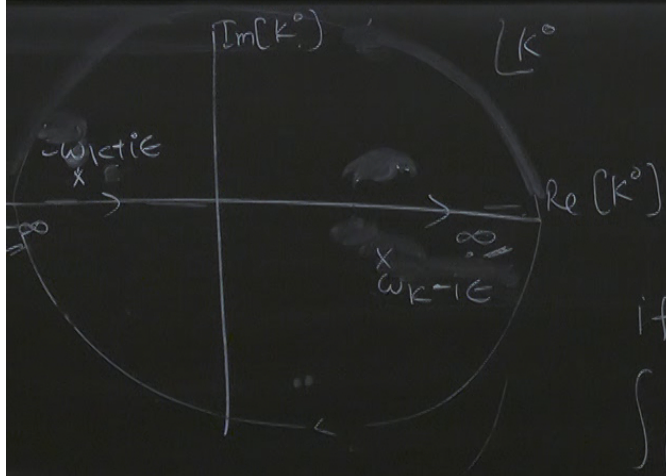 Im[K°)
K°
-ωK+iϵ
x
Re [K°)
-∞
∞
x
ωK-iϵ
if
∫